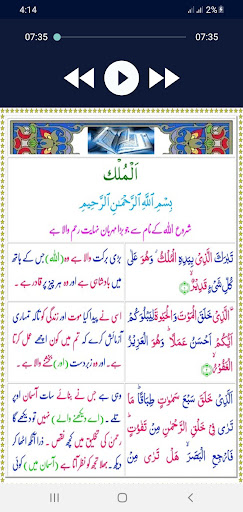 4:14
2%
07:35
07:35
اَلْمُلْك
بِسْمِ اللّٰهِ الرَّحْمٰنِ الرَّحِيْمِ
شروع اللہ کے نام سے جو بڑا مہربان نہایت رحم والا ہے
تَبٰرَكَ الَّذِیْ بِیَدِهِ الْمُلْكُ وَهُوَ عَلٰی
كُلِّ شَیْءٍ قَدِیْرُ ۝۱
بڑی برکت والا ہے وہ (اللہ) جس کے ہاتھ
میں بادشاہی ہے اور وہ ہر چیز پر قادر ہے۔
الَّذِیْ خَلَقَ الْمَوْتَ وَالْحَیٰوةَ لِیَبْلُوَكُمْ
اَیُّكُمْ اَحْسَنُ عَمَلًا وَهُوَ الْعَزِیْزُ
الْغَفُوْرُ ۝۲
اسی نے پیدا کیا موت اور زندگی کو تاکہ تمہاری
آزمائش کرے کہ تم میں کون اچھے عمل کرتا
ہے اور وہ زبردست (اور) بخشنے والا ہے۔
الَّذِیْ خَلَقَ سَبْعَ سَمٰوٰتٍ طِبَاقًا مَا
تَرٰی فِیْ خَلْقِ الرَّحْمٰنِ مِنْ تَفٰوُتٍ
فَارْجِعِ الْبَصَرَ هَلْ تَرٰی مِنْ
وہی ہے جس نے بنائے سات آسمان اوپر
تلے۔ (اے دیکھنے والے) تو نہیں دیکھے گا
رحمٰن کی تخلیق میں کچھ نقص۔ ذرا آنکھ اٹھا کر
دیکھ۔ بھلا تجھ کو نظر آتا ہے (آسمان میں) کوئی